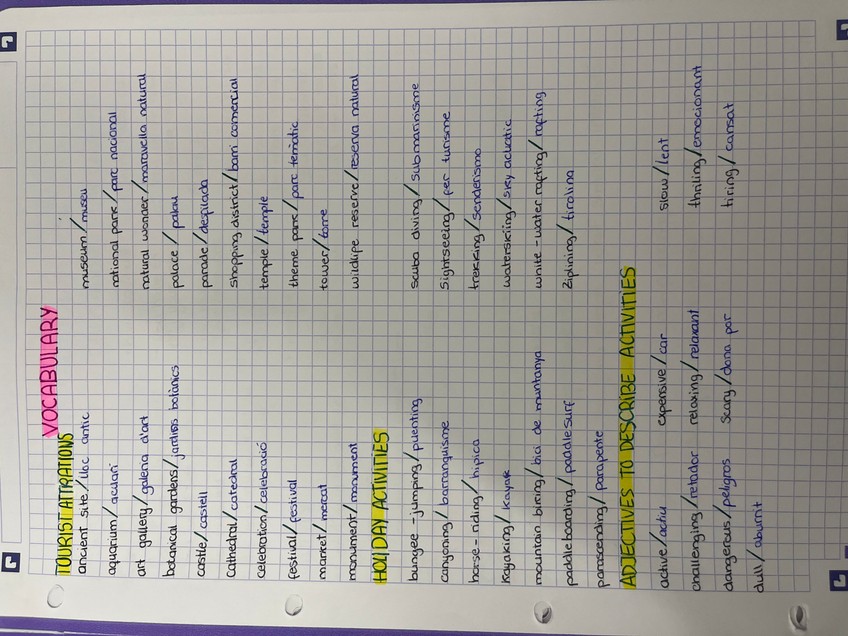 VOCABULARY
TOURIST ATTRATIONS
ancient site/lloc antic
aquarium/aquari
art gallery/galeria d'art
botanical gardens/jardins botànics
castle/castell
Cathedral/catedral
celebration/celebració
festival/festival
market/mercat
monument/monument
museum/museu
national park/parc nacional
natural wonder/maravella natural
palace/palau
parade/desfilada
shopping district/barri comercial
temple/temple
theme park/parc temàtic
tower/torre
wildlife reserve/reserva natural
HOLIDAY ACTIVITIES
bungee-jumping/puenting
canyoning/barranquisme
horse-riding/hipica
Kayaking/Kayak
mountain biking/bici de muntanya
paddleboarding/paddle surf
parascending/parapente
scuba diving/submarinisme
Sightseeing/fer turisme
trekking/senderismo
waterskiing/sky acuàtic
white-water rafting/rafting
Ziplining/tirolina
ADJECTIVES TO DESCRIBE ACTIVITIES
active/actiu
challenging/retador
dangerous/peligros
dull/aburrit
expensive/car
relaxing/relaxant
Scary/dona por
slow/lent
thrilling/emocionant
tiring/cansat